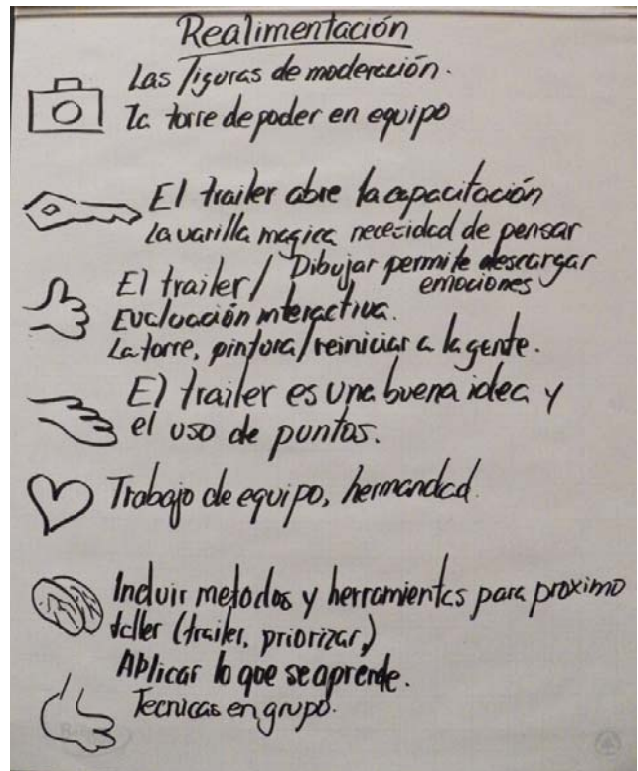 Realimentación
Las figuras de moderación.
La torre de poder en equipo
El trailer abre la capacitación
La varilla magica, necesidad de pensar
El trailer / Dibujar permite descargar
emociones
Evaluación interactiva.
La torre, pintura / reiniciar a la gente.
El trailer es una buena idea y
el uso de puntos.
Trabajo de equipo, hermandad.
Incluir metodos y herramientas para proximo
taller (trailer, priorizar,)
Aplicar lo que se aprende.
Tecnicas en grupo.